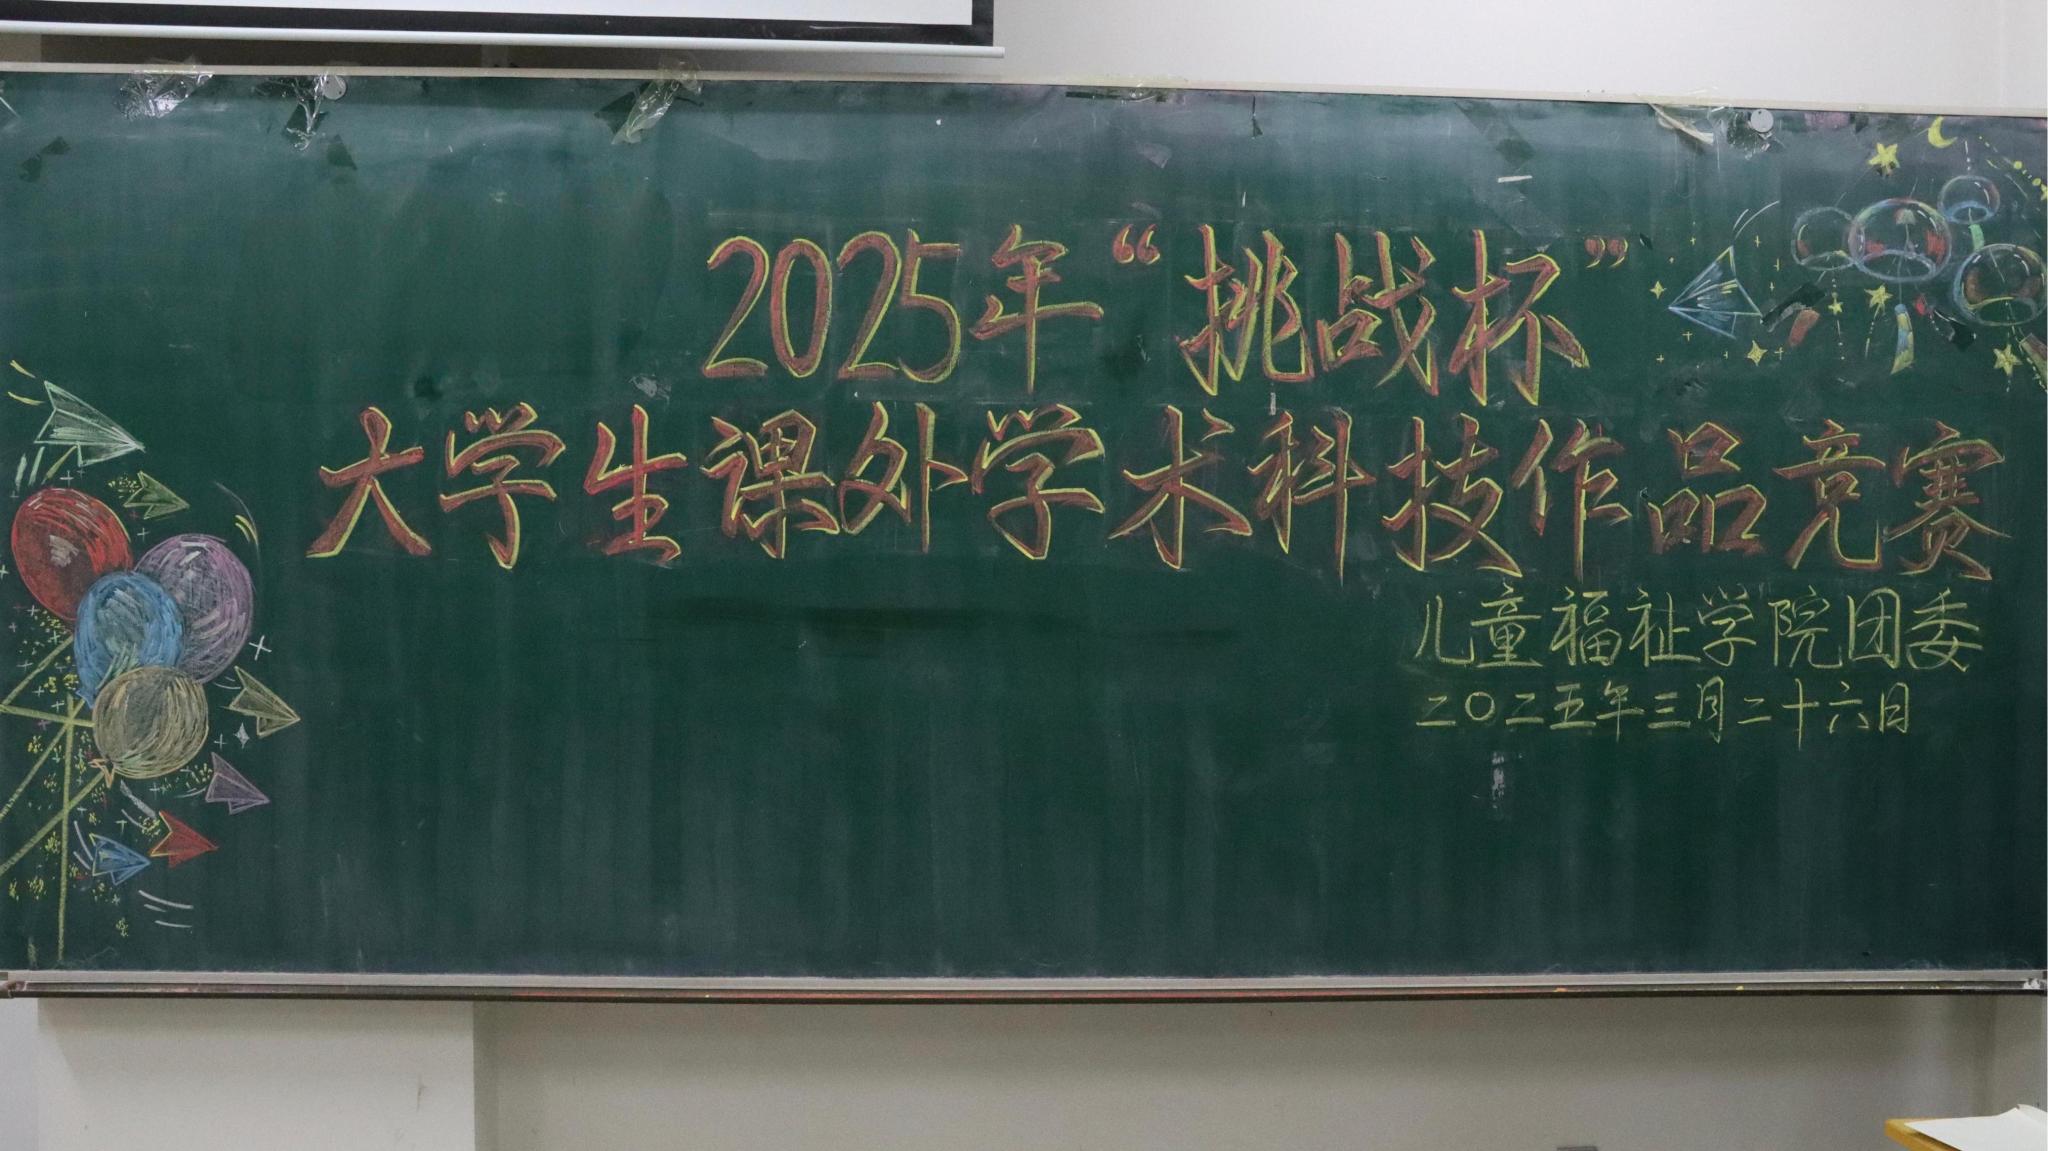 2025年“挑战杯”
大学生课外学术科技作品竞赛
儿童福祉学院团委
二〇二五年三月二十六日